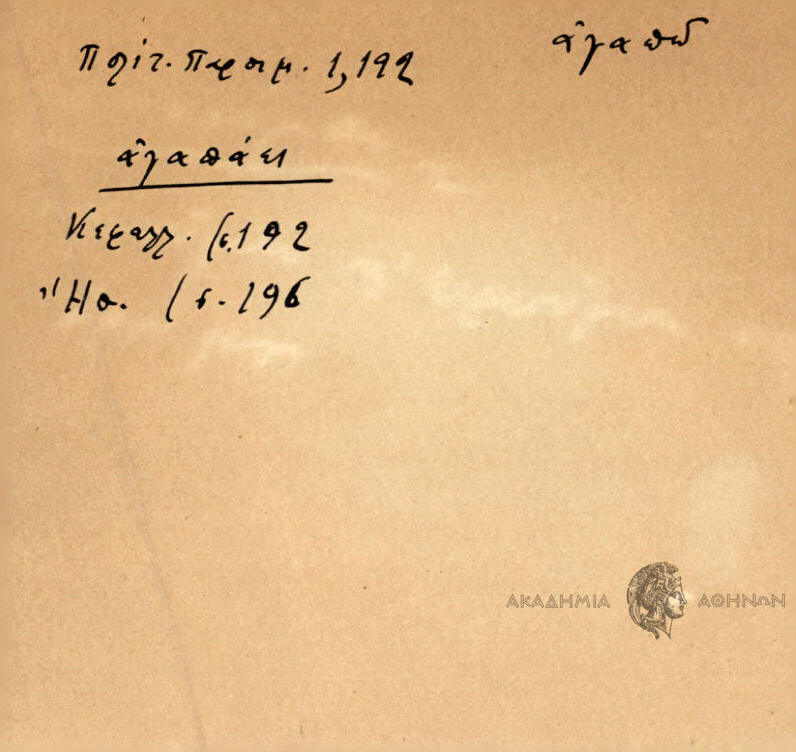 Πολίτ. Παροιμ. 1,192
ἀγαπῶ
ἀγαπάει
Κεφαλλ. (σ.192
Ἤπ. (σ. 196
ΑΚΑΔΗΜΙΑ ΑΘΗΝΩΝ